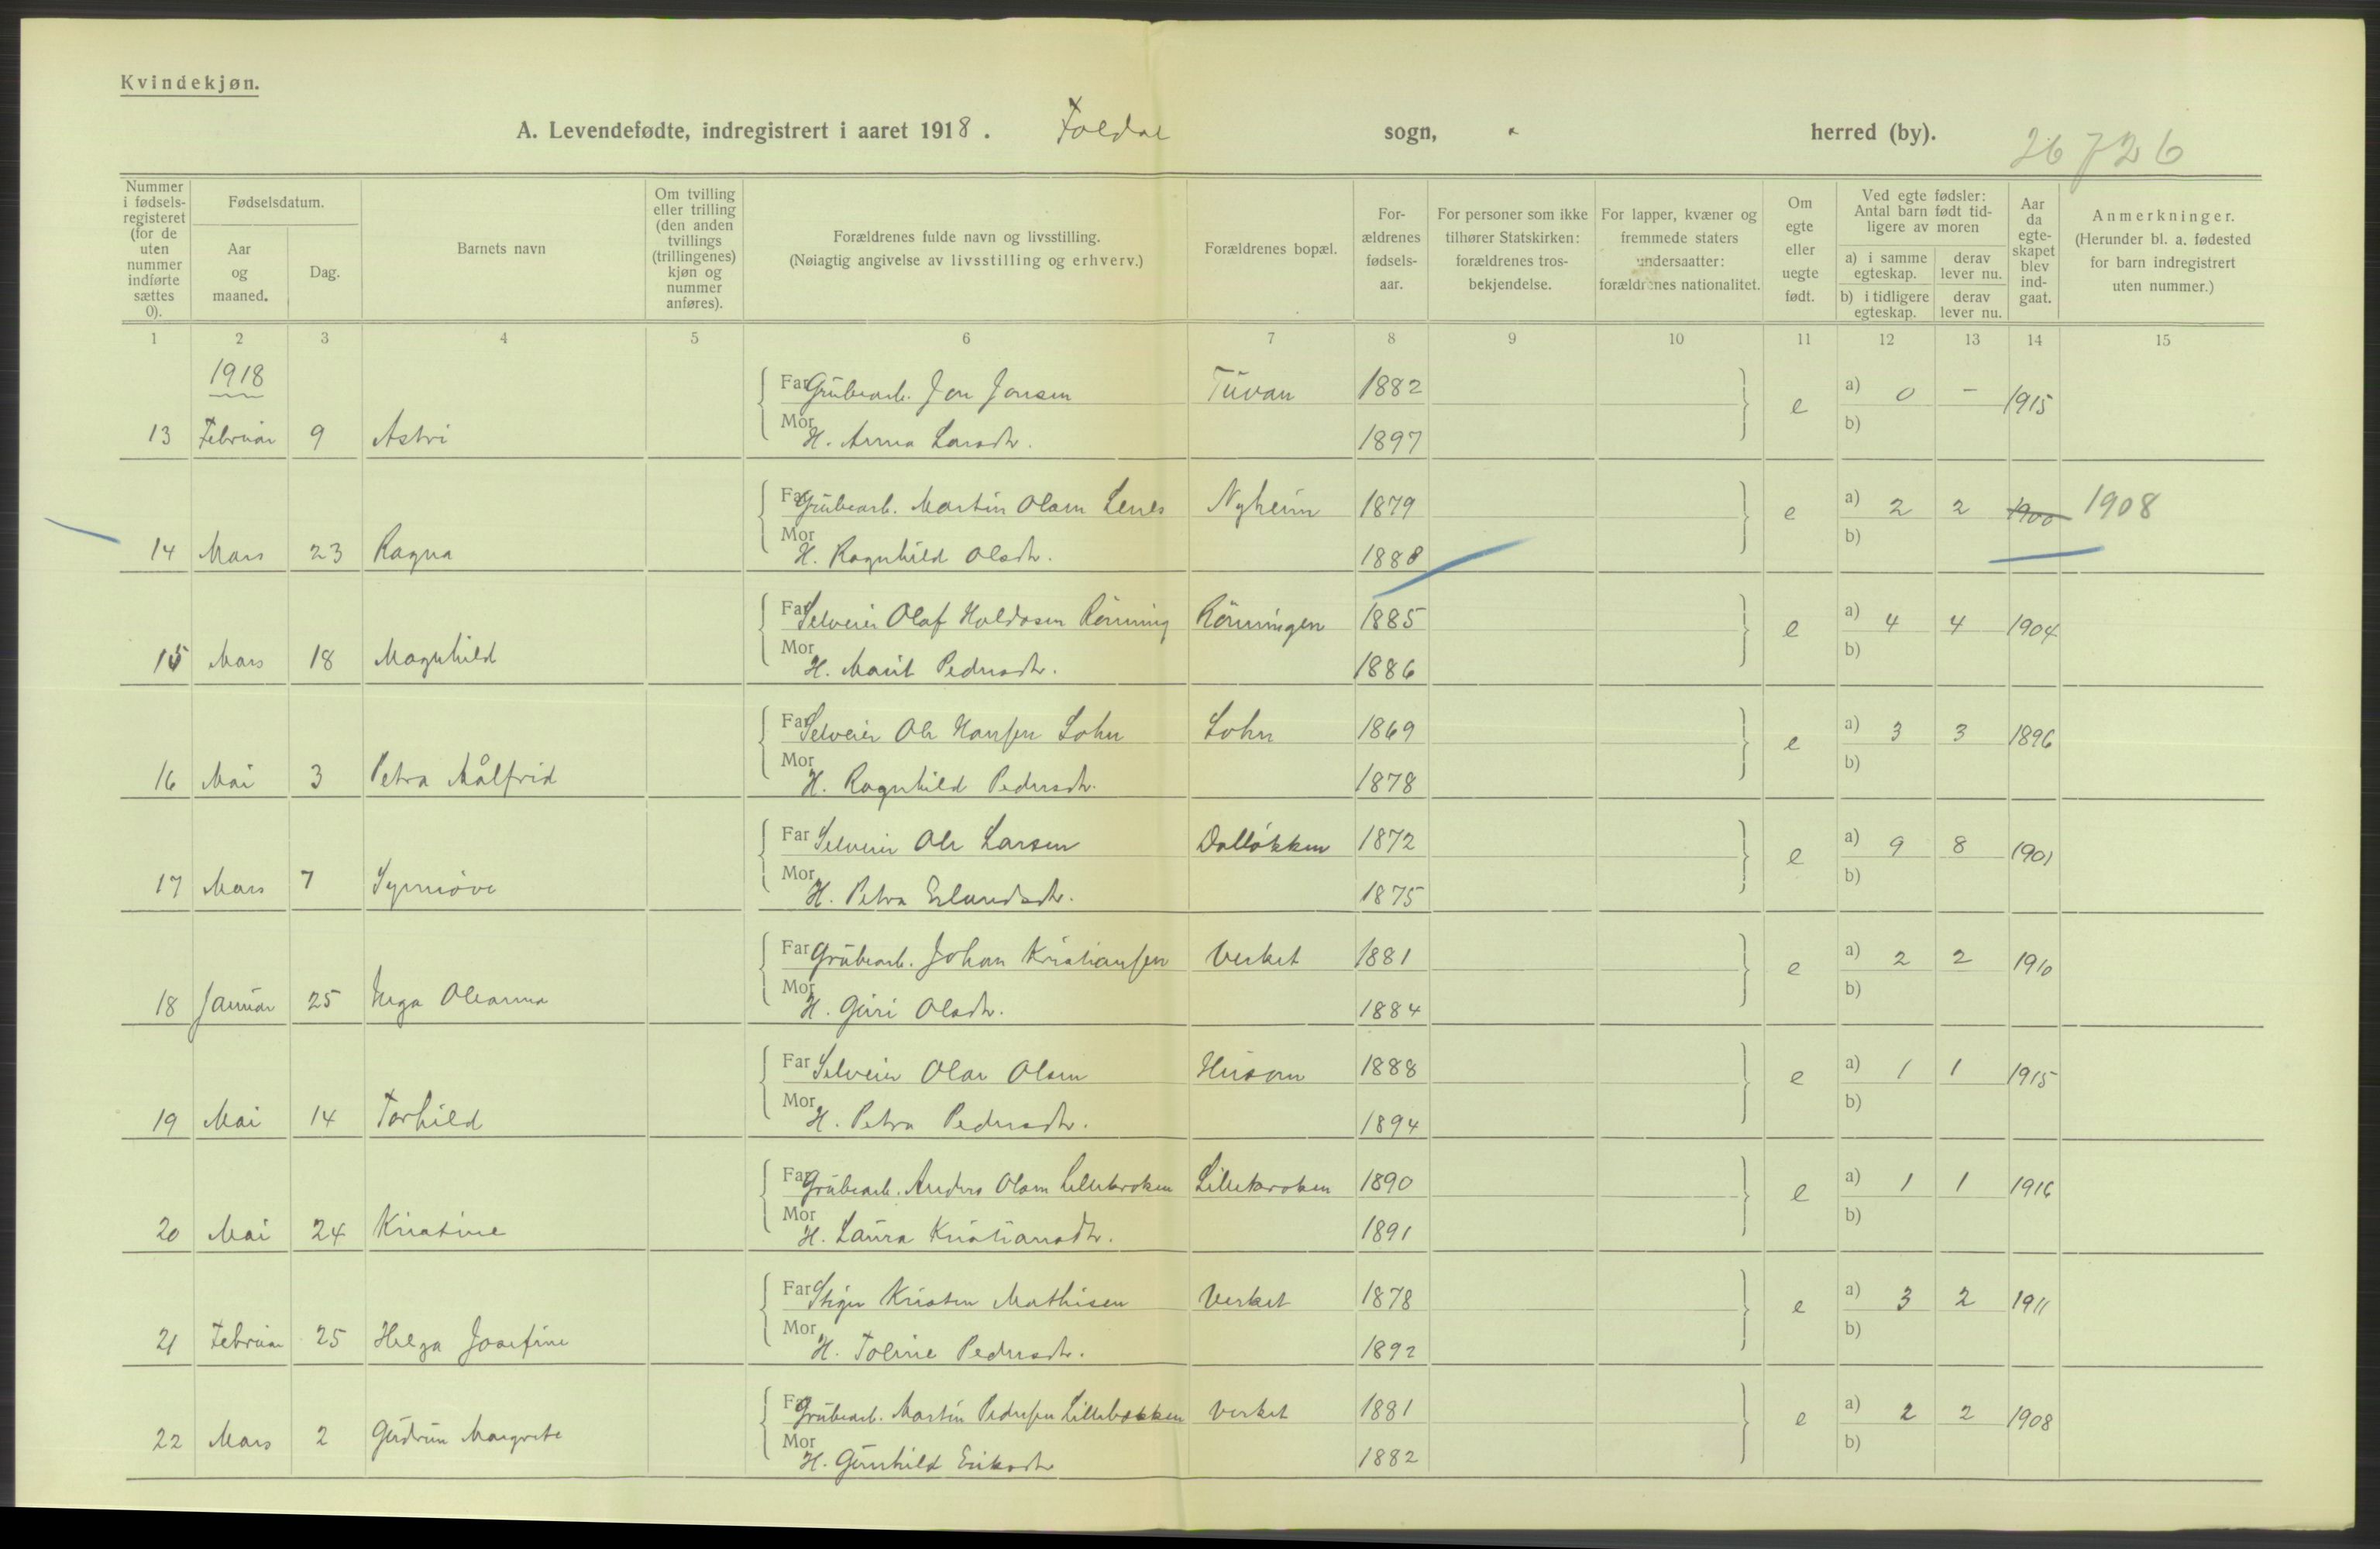 Kvindekjøn.
A. Levendefødte, indregistrert i aaret 1918. Foldal sogn, " herred (by).
26726
Nummer i fødselsregisteret (for de uten nummer indførte sættes 0).
Fødselsdatum.
Aar og maaned.
Dag.
Barnets navn
Om tvilling eller trilling (den anden tvillings (trillingenes) kjøn og nummer anføres).
Forældrenes fulde navn og livsstilling. (Nøiagtig angivelse av livsstilling og erhverv.)
Forældrenes bopæl.
Forældrenes fødselsaar.
For personer som ikke tilhører Statskirken: forældrenes trosbekjendelse.
For lapper, kvæner og fremmede staters undersaatter: forældrenes nationalitet.
Om egte eller uegte født.
Ved egte fødsler: Antal barn født tidligere av moren
a) i samme egteskap. derav lever nu.
b) i tidligere egteskap. derav lever nu.
Aar da egteskapet blev indgaat.
Anmerkninger. (Herunder bl. a. fødested for barn indregistrert uten nummer.)
1 2 3 4 5 6 7 8 9 10 11 12 13 14 15
1918
Far Grubearb. Jon Jonsen Tuvan 1882 e a) 0 – 1915
13 Februar 9 Astri Mor H. Anna Larsdtr. 1897 b)
Far Grubearb. Martin Olsen Lenes Nyheim 1879 e a) 2 2 1900 1908
14 Mars 23 Ragna Mor H. Ragnhild Olsdtr. 1888 b)
Far Selveier Olaf Haldosen Rönning Rönningen 1885 e a) 4 4 1904
15 Mars 18 Magnhild Mor H. Marit Pedersdtr. 1886 b)
Far Selveier Ole Hansen Lohn Lohn 1869 e a) 3 3 1896
16 Mai 3 Petra Målfrid Mor H. Ragnhild Pedersdtr. 1878 b)
Far Selveier Ole Larsen Dalløkken 1872 e a) 9 8 1901
17 Mars 7 Synnöve Mor H. Petra Erlandsdtr. 1875 b)
Far Grubearb. Johan Kristiansen Verket 1881 e a) 2 2 1910
18 Januar 25 Inga Oleanna Mor H. Guri Olsdtr. 1884 b)
Far Selveier Olav Olsen Husom 1888 e a) 1 1 1915
19 Mai 14 Torhild Mor H. Petra Pedersdtr. 1894 b)
Far Grubearb. Anders Olsen Lillekroken Lillekroken 1890 e a) 1 1 1916
20 Mai 24 Kristine Mor H. Laura Kristiansdtr. 1891 b)
Far Stiger Kristen Mathisen Verket 1878 e a) 3 2 1911
21 Februar 25 Helga Josefine Mor H. Toline Pedersdtr. 1892 b)
Far Grubearb. Martin Pedersen Lillebækken Verket 1881 e a) 2 2 1908
22 Mars 2 Gudrun Margrete Mor H. Gunhild Eriksdtr 1882 b)